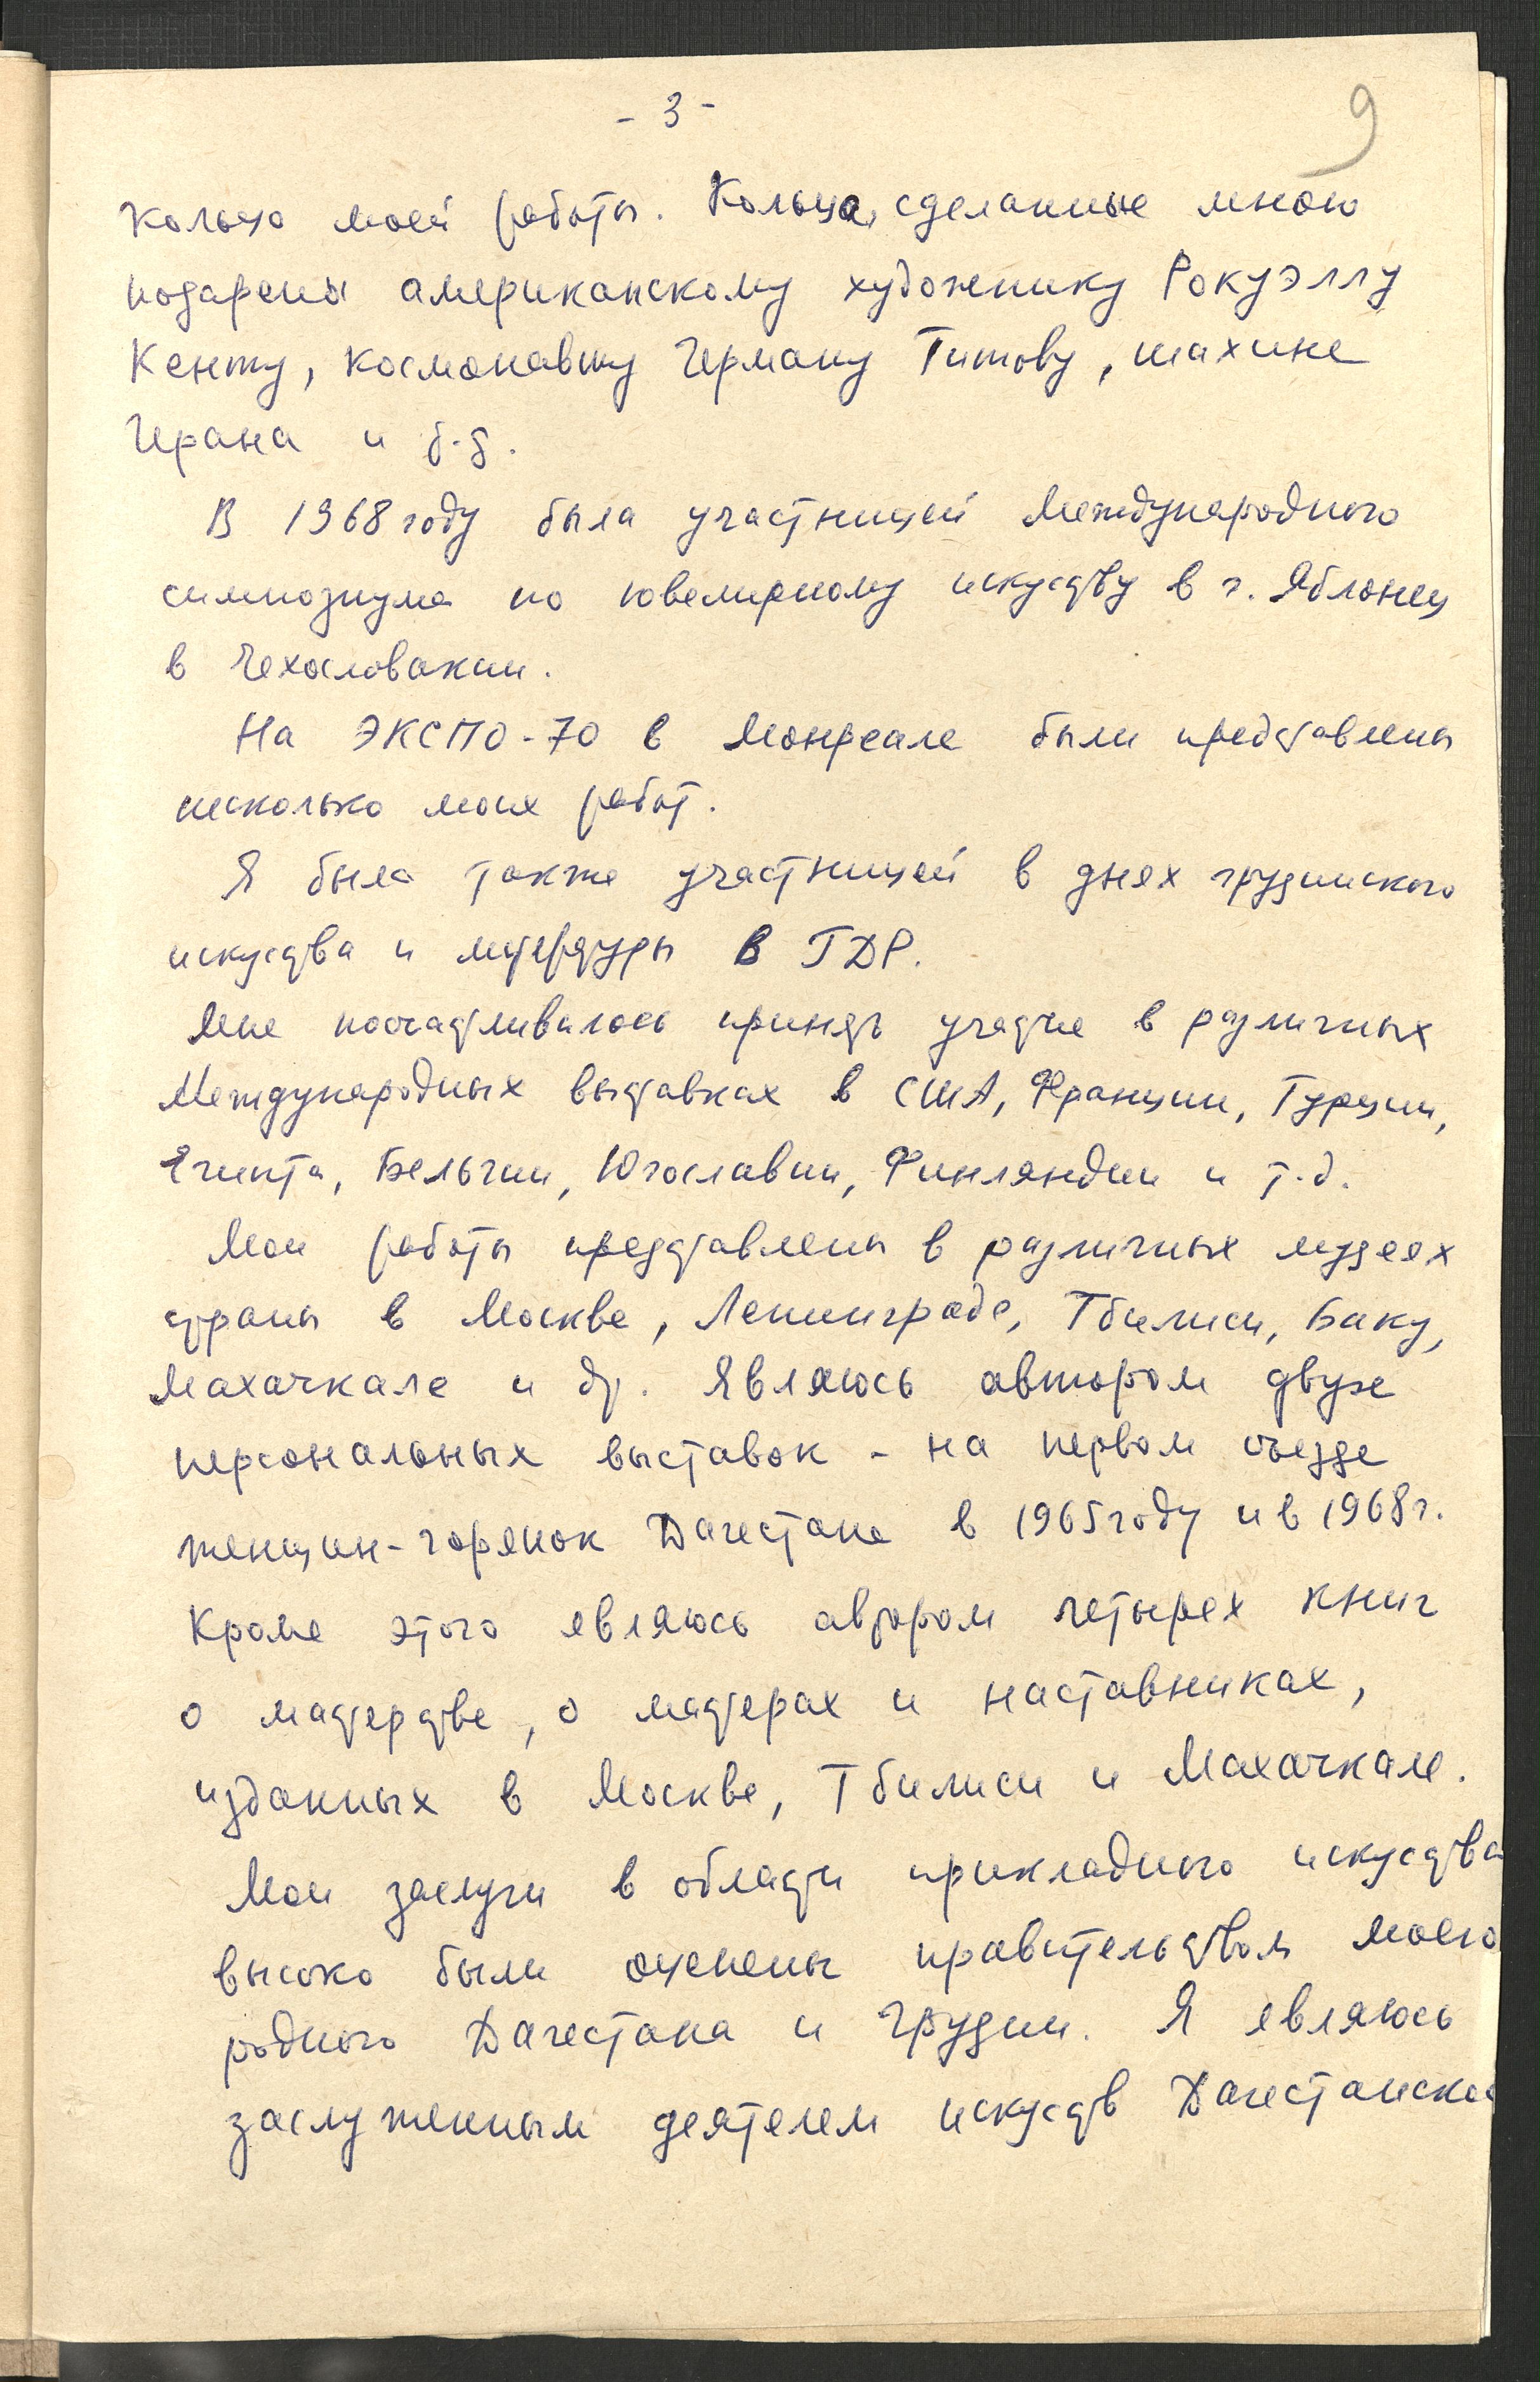 - 3 -
9
кольцо моей работы. Кольца, сделанные мною
подарены американскому художнику Рокуэллу
Кенту, космонавту Герману Титову, шахине
Ирана и т.д.
В 1968 году была участницей Международного
симпозиума по ювелирному искусству в г. Яблонец
в Чехословакии.
На ЭКСПО-70 в Монреале были представлены
несколько моих работ.
Я была также участницей в днях грузинского
искусства и литературы в ГДР.
Мне посчастливилось принять участие в различных
Международных выставках в США, Франции, Турции,
Египта, Бельгии, Югославии, Финляндии и т.д.
Мои работы представлены в различных музеях
страны в Москве, Ленинграде, Тбилиси, Баку,
Махачкале и др. Являюсь автором двух
персональных выставок - на первом съезде
женщин-горянок Дагестана в 1965 году и в 1968 г.
Кроме этого являюсь автором четырех книг
о мастерстве, о мастерах и наставниках,
изданных в Москве, Тбилиси и Махачкале.
Мои заслуги в области прикладного искусства
высоко были оценены правительством моего
родного Дагестана и Грузии. Я являюсь
заслуженным деятелем искусств Дагестанской